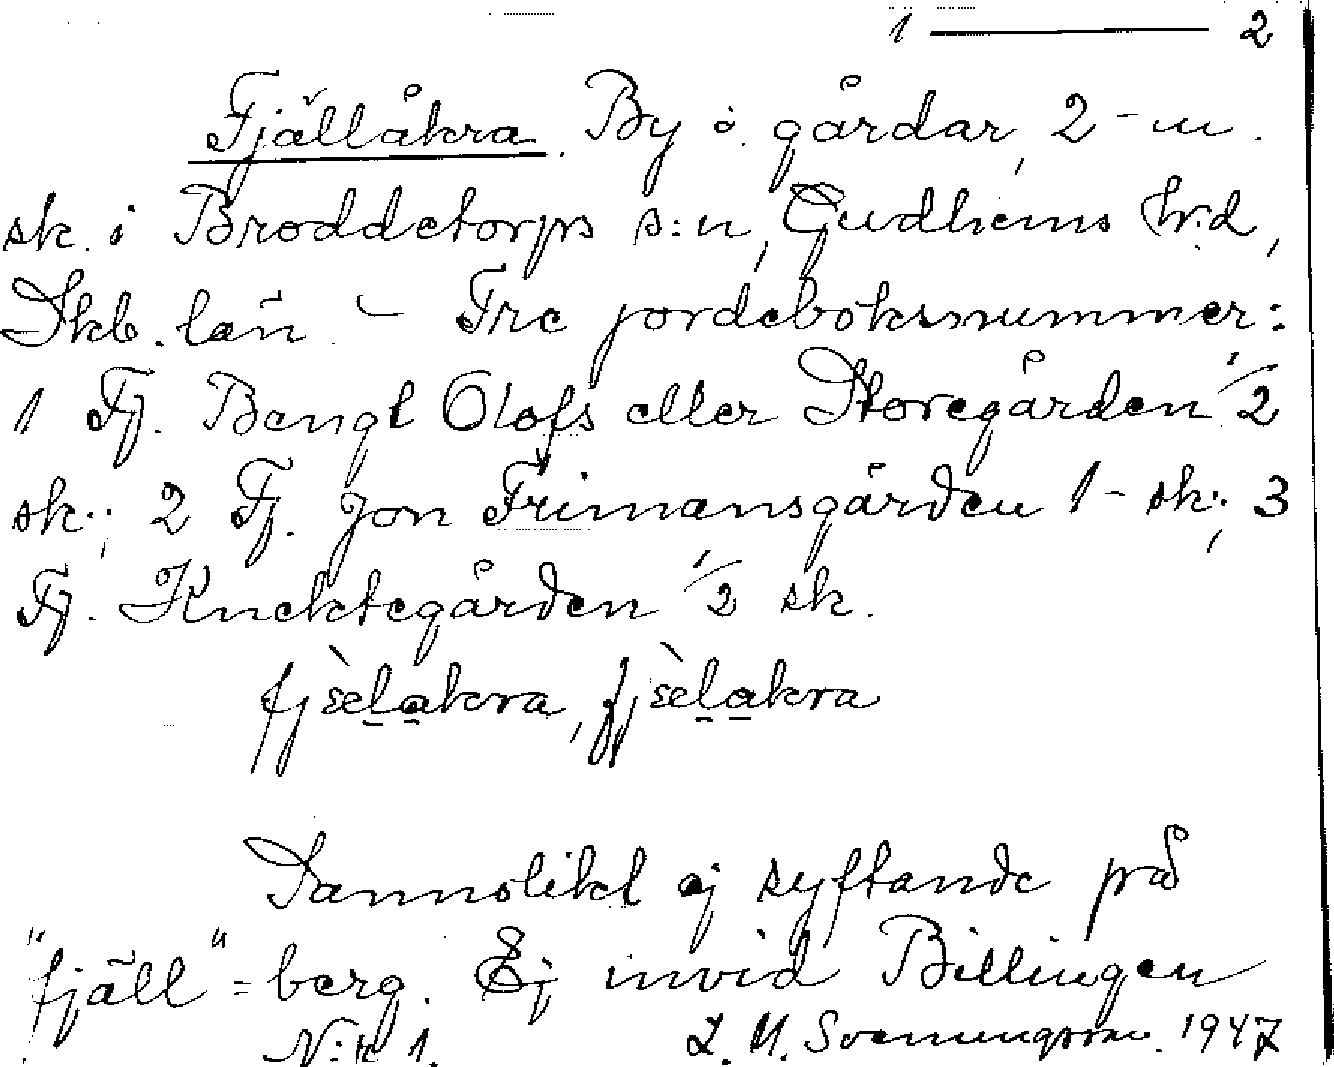 1 — 2
Fjällåkra. By o. gårdar, 2 - m.
sk. i Broddetorps s:n, Gudhems hrd,
Skb. län. - Tre jordeboksnummer:
1 Fj. Bengt Olofs eller Storegården 1/2
sk.; 2 Fj. Jon Frimansgården 1 - sk.; 3
Fj. Knektegården 1/2 sk.
fjæ̀lakra, fjæ̀lakra
Sannolikt ej syftande på
"fjäll" = berg. Ej invid Billingen
N:r 1. Svenningsson. 1947